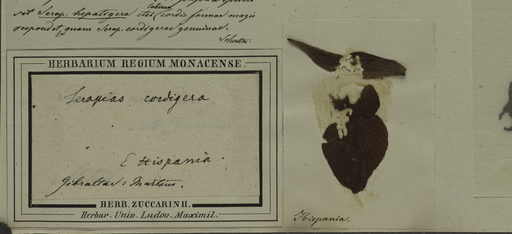 sit Serap. hepatigera cted (cordis formae magis
respondet, quam Serap. cordigerae genuinae.
HERBARIUM REGIUM MONACENSE.
Serapias cordigera
E Hispania.
Gibraltar: Martius.
HERB. ZUCCARINII.
Herbar. Univ. Ludov. Maximil.
Hispania.